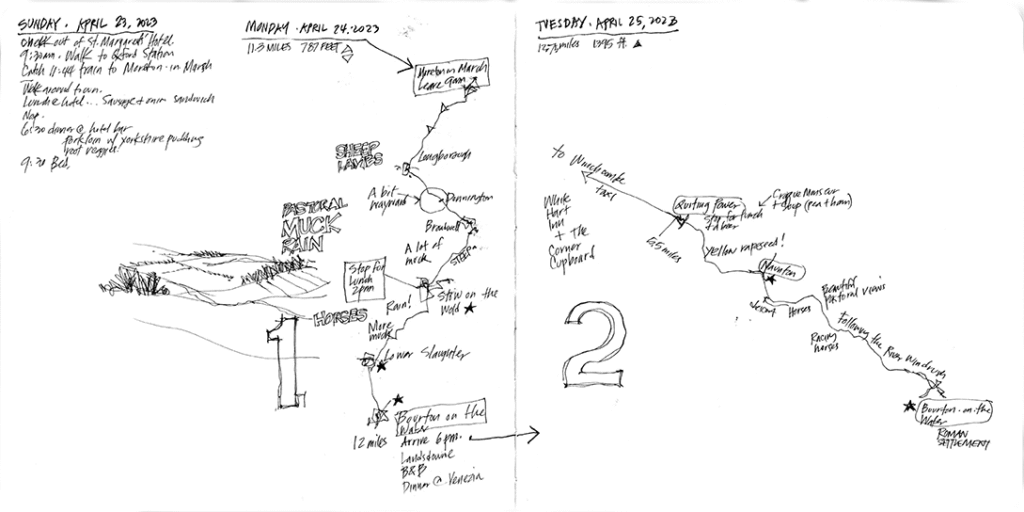 SUNDAY. APRIL 23, 2023
check out of St. Margarets' Hotel
9:30am. Walk to Oxford Station
Catch 11:44 train to Moreton-in Marsh
Walk around town.
Lunch @ hotel... Sausage + onion sandwich
Nap.
6:30 dinner @ hotel bar
Pork loin w/ yorkshire pudding
root veggies.
9:30 Bed.
MONDAY. APRIL 24.2023
11.3 MILES 787 FEET
Moreton in Marsh
Leave 9am
Longborough
SHEEP
LAMBS
A bit
wayward
Donnington
Broadwell
PASTORAL
MUCK
RAIN
A lot of
muck
STEEP
Stop for
Lunch
2pm
Rain!
Stow on the
Wold
HORSES
More
muck
1
Lower Slaughter
12 miles
Bourton on the
Water
Arrive 6pm.
Landsdowne
B&B
Dinner @ Venezia
TUESDAY. APRIL 25, 2023
miles 1395 ft.
to Winchcombe
taxi
White
Hart
Inn
+ the
Corner
Cupboard
Guiting Power
Stop for lunch
+ a beer
Croque Monsieur
+ Soup (pea + ham)
6.5 miles
Yellow rapeseed!
Naunton
Horses
Beautiful
pastoral views
Racing
horses
Following the River Windrush
2
Bourton-on-the
Water
ROMAN
SETTLEMENT